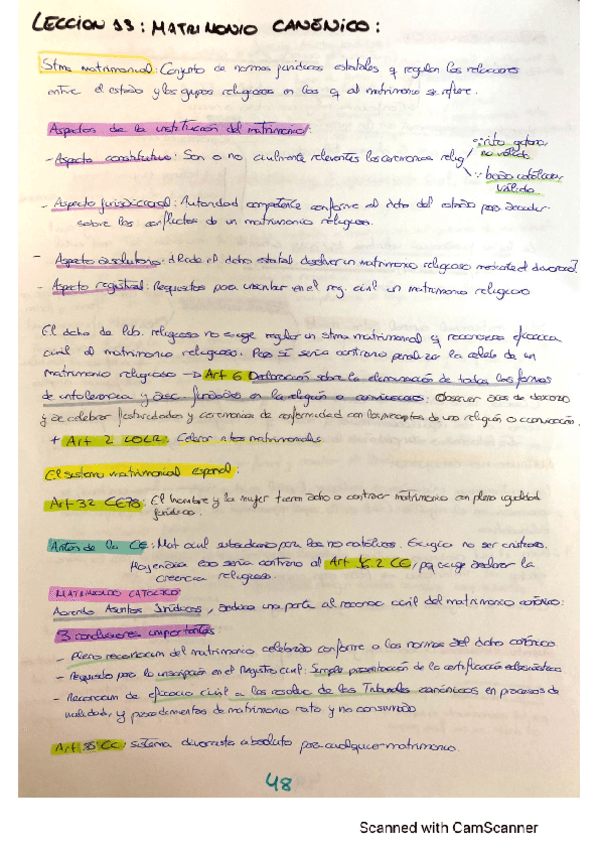 LECCION 13: MATRIMONIO CANÓNICO:
Stma matrimonial: Conjunto de normas jurídicas estatales q regulan las relaciones
entre el estado y los grupos religiosos en las q al matrimonio se refiere.
Aspectos de la institución del matrimonio:
- Aspecto constitutivo: Son o no civilmente relevantes las ceremonias relig
rito gitano, no válido
boda católica válido
- Aspecto jurisdiccional: Autoridad competente conforme al dcho del estado para
sobre los conflictos de un matrimonio religioso.
- Aspecto disolutorio: el dcho estatal disolver un matrimonio religioso mediante el divorcio?
- Aspecto registral: Requisitos para inscribir en el reg. civil un matrimonio religioso
El dcho de lib. religiosa no exige regular un stma matrimonial q reconozca eficacia
civil al matrimonio religioso. Pero sí sería contrario penalizar la celeb de un
matrimonio religioso → Art 6 Declaración sobre la eliminación de todas las formas
de intolerancia y disc fundadas en la religión o convicciones: Observar días de descanso
y de celebrar festividades y ceremonias de conformidad con los preceptos de una religión o convicción.
+ Art 2 LOLR: Celebrar ritos matrimoniales
El sistema matrimonial español:
Art 32 CE78: El hombre y la mujer tienen dcho a contraer matrimonio con plena igualdad
jurídica.
Antes de la CE: Mat civil subsidiario para los no católicos. Exigía no ser cristiano.
Hoy en día eso sería contrario al Art 16.2 CE, pq exige declarar la
creencia religiosa.
MATRIMONIO CATÓLICO
Acuerdo Asuntos Jurídicos, dedica una parte al reconoc civil del matrimonio canónico:
3 conclusiones importantes
- Pleno reconocim del matrimonio celebrado conforme a las normas del dcho canónico
- Requisito para la inscripción en el Registro civil: Simple presentación de la certificación eclesiástica
- Reconocim de eficacia civil a las resoluc de los Tribunales canónicos en procesos de
nulidad, y procedimientos de matrimonio rato y no consumado
Art 85 CC: sistema divorcista absoluto para cualquier matrimonio.
48
Scanned with CamScanner